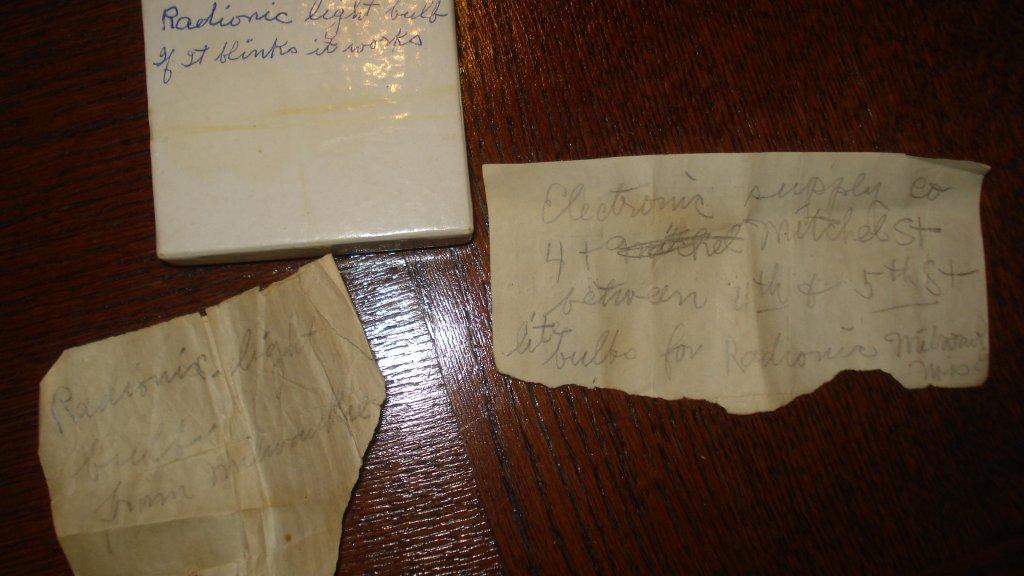 Radionic light bulb
If It blinks it works
Electronic supply co
4 + Mitchel St
between 4th & 5th St
lite bulbs for Radionic
Radionic light
from Milwaukee